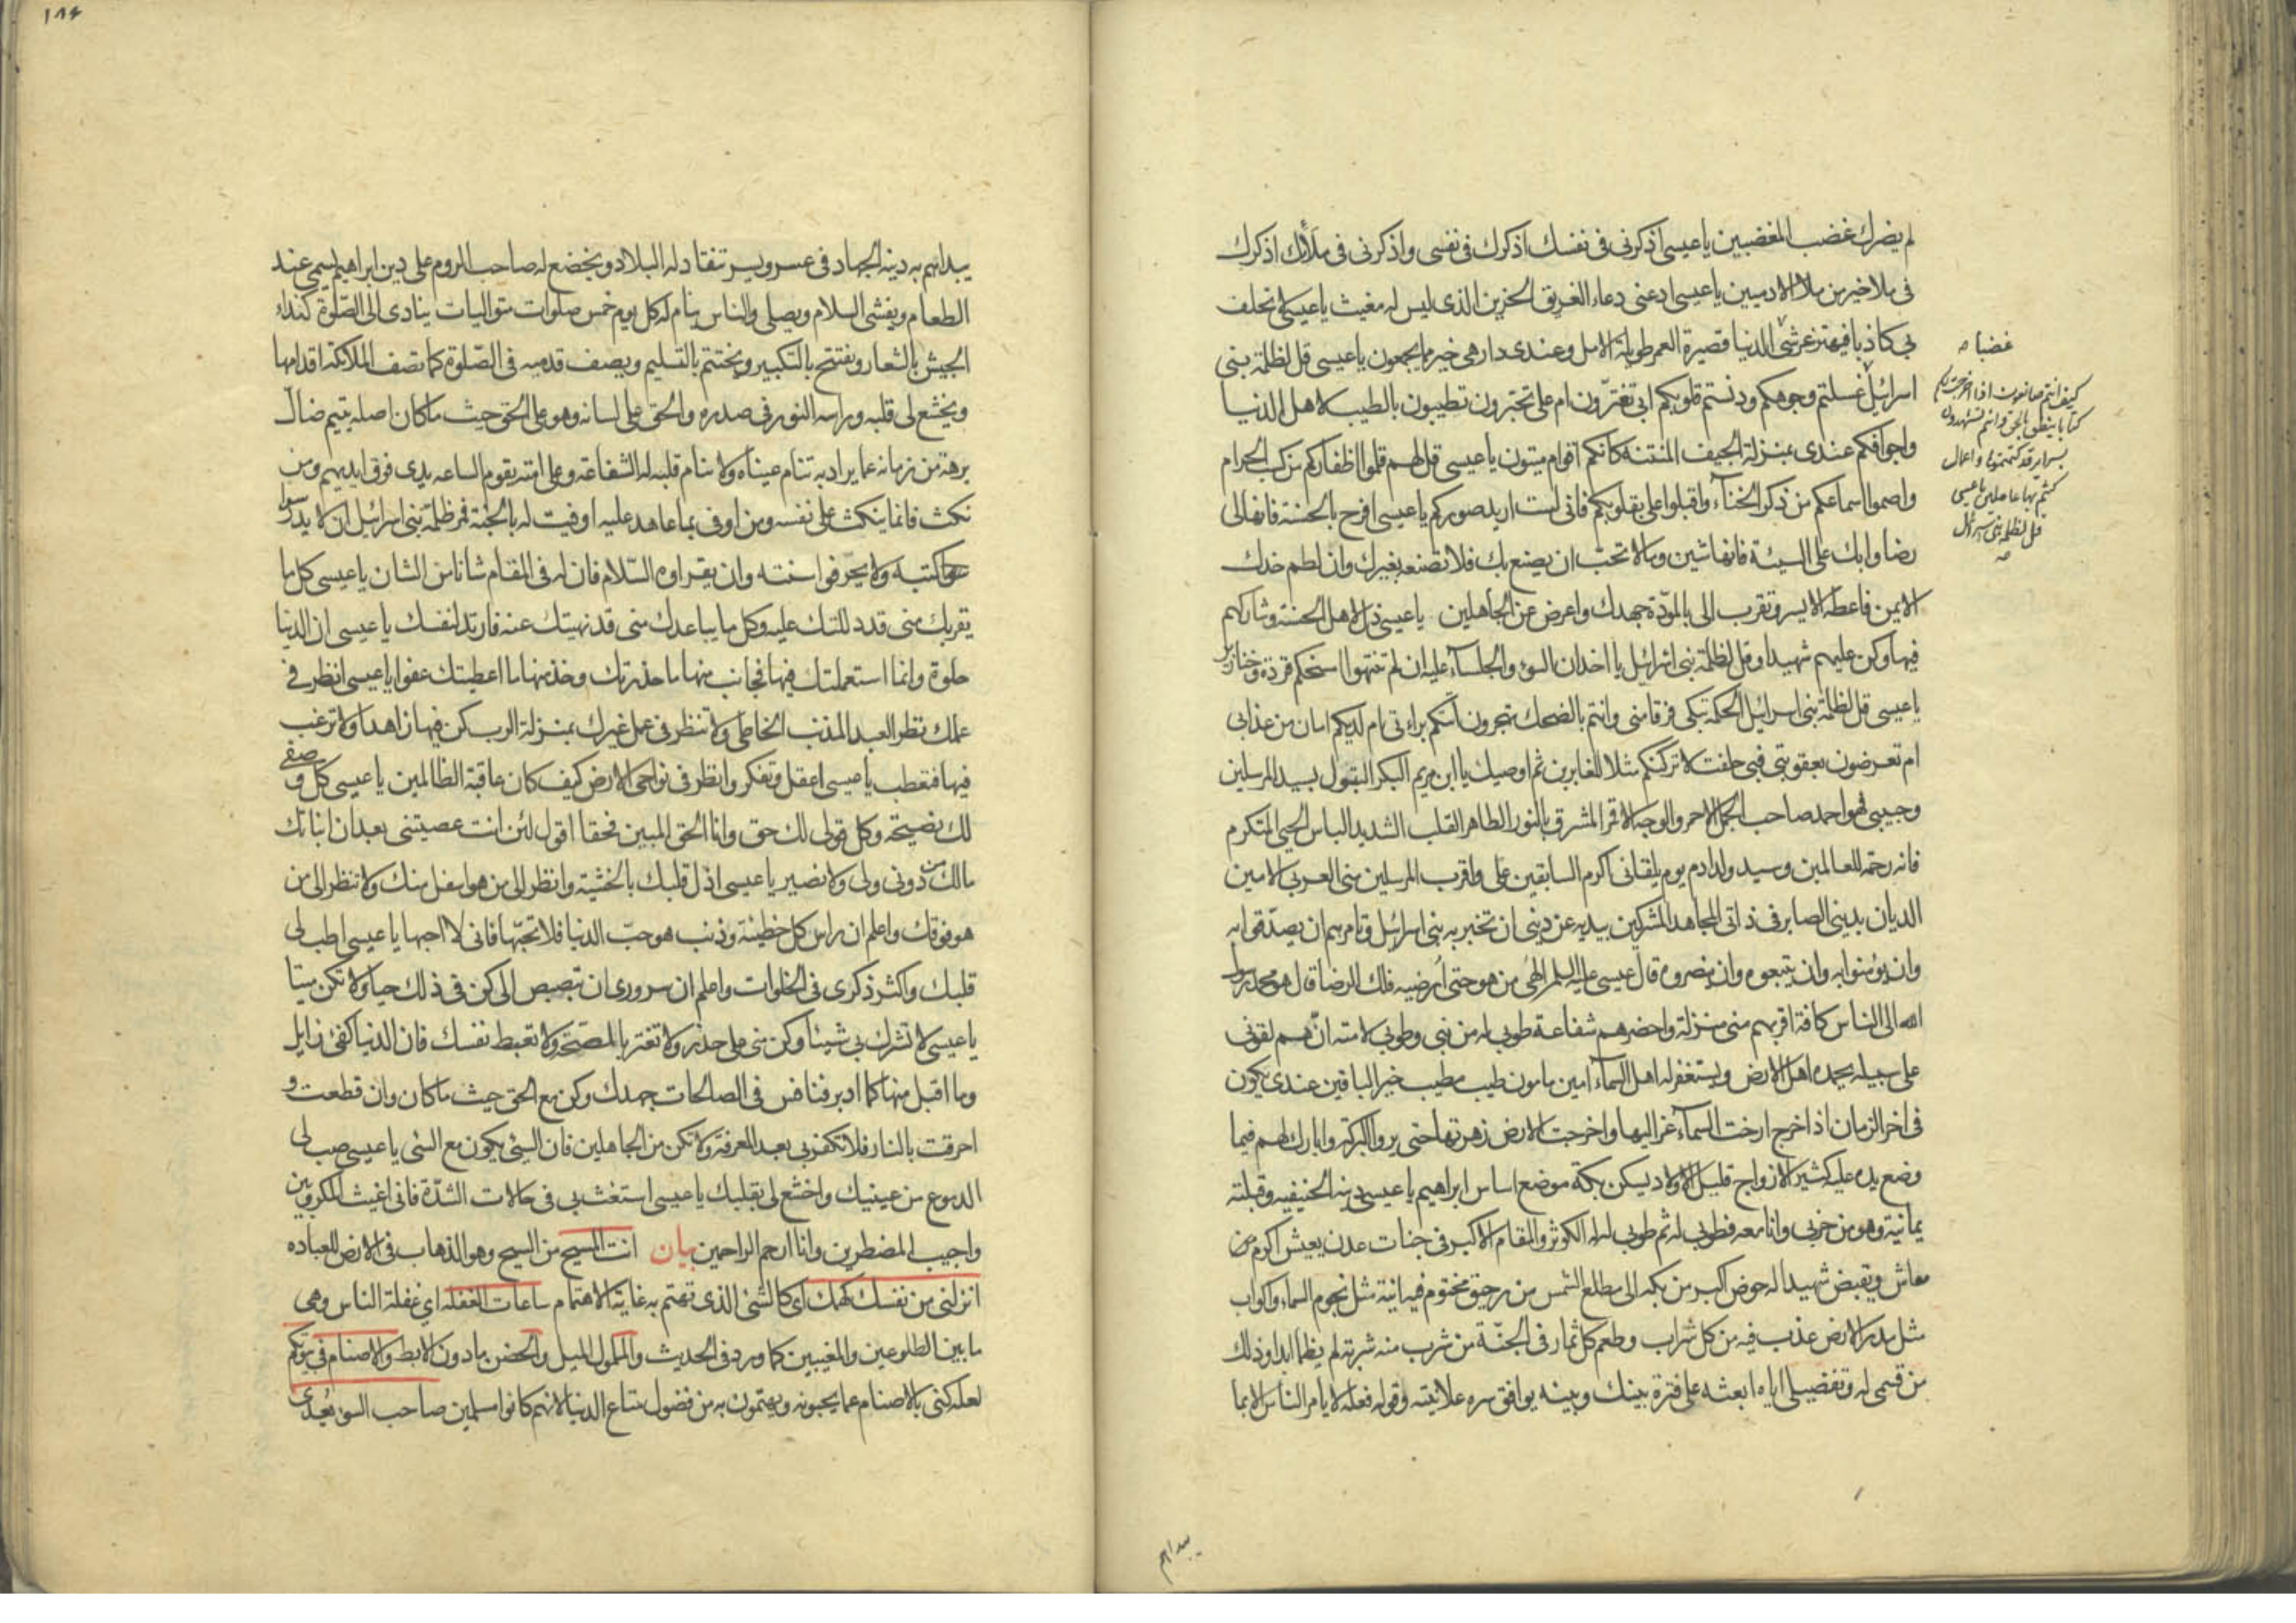 لم يضرك غضب المغضبين يا عيسى اذكرنى فى نفسك اذكرك فى نفسى واذكرنى فى ملأك اذكرك
فى ملا خير من ملا الادميين يا عيسى ادعنى دعاء الغريق الحزين الذى ليس له مغيث يا عيسى لا تحلف
بى كاذبا فيهتز عرشى الدنيا قصيرة العمر طويلة الامل وعندى دار هى خير مما يجمعون يا عيسى قل لظلمة بنى
اسرائيل غسلتم وجوهكم ودنستم قلوبكم ابى تغترّون ام على تجترون تطيبون بالطيب لاهل الدنيا
واجوافكم عندى بمنزلة الجيف المنتنة كانكم اقوام ميتون يا عيسى قل لهم قلموا اظفاركم من كسب الحرام
واصموا اسماعكم من ذكر الخناء واقبلوا على بقلوبكم فانى لست اريد صوركم يا عيسى افرح بالحسنة فانها لى
رضا وابك على السيئة فانها شين وما لا تحبّ ان يصنع بك فلا تصنعه بغيرك وان لطم خدك
الايمن فاعطه الايسر وتقرب الى بالمودّة جهدك واعرض عن الجاهلين يا عيسى ذل لاهل الحسنة وشاركهم
فيها وكن عليهم شهيدا وقل لظلمة بنى اسرائيل يا اخدان السوء والجلساء عليه ان لم تنتهوا امسخكم قردة وخنازير
يا عيسى قل لظلمة بنى اسرائيل الحكمة تبكى فرقا منى وانتم بالضحك تهجرون أتتكم براءتى ام لديكم امان من عذابى
ام تعرضون بعقوبتى فبى حلفت لاتركنكم مثلا للغابرين ثم اوصيك يا ابن مريم البكر البتول بسيد المرسلين
وحبيبى فهو احمد صاحب الجمل الاحمر والوجه الاقمر المشرق بالنور الطاهر القلب الشديد الباس الحيى المتكرم
فانه رحمة للعالمين وسيد ولد ادم يوم يلقانى اكرم السابقين على واقرب المرسلين منى العربى الامين
الديان بدينى الصابر فى ذاتى المجاهد المشركين بيديه عن دينى ان تخبر به بنى اسرائيل وتامرهم ان يصدّقوا به
وان يؤمنوا به وان يتبعوه وان ينصروه قال عيسى عليه السلم الهى من هو حتى ارضيه فلك الرضا قال هو محمد رسول
الله الى الناس كافة اقربهم منى منزلة واحضرهم شفاعة طوبى له من نبى وطوبى لامته ان هم لقونى
على سبيله يحمده اهل الارض ويستغفر له اهل السماء امين مامون طيب مطيب خير الباقين عندى يكون
فى اخر الزمان اذا خرج ارخت السماء عزاليها واخرجت الارض زهرتها حتى يروا البركة وابارك لهم فيما
وضع يده عليه كثير الازواج قليل الاولاد يسكن بكة موضع اساس ابراهيم يا عيسى دينه الحنيفيه وقبلته
يمانية وهو من حزبى وانا معه فطوبى له ثم طوبى له له الكوثر والمقام الاكبر فى جنات عدن يعيش اكرم من
معاش ويقبض شهيدا له حوض اكبر من بكة الى مطلع الشمس من رحيق مختوم فيه انية مثل نجوم السماء واكواب
مثل مدر الارض عذب فيه من كل شراب وطعم كل ثمار فى الجنّة من شرب منه شربة لم يظما ابدا وذلك
من قسمى له وتفضيلى اياه ابعثه على فترة بينك وبينه يوافق سره علانيته وقوله فعله لا يامر الناس الا بما
غضبا
كيف انتم صانعون اذا اخرجت لكم
كتابا ينطق بالحق وانتم تشهدون
بسراير قد كتمتموها واعمال
كنتم بها عاملين يا عيسى
قل لظلمة بنى اسرائيل
يبداهم
١٨٤
يبداهم به دينه الجهاد فى عسر ويسر تنقاد له البلاد ويخضع له صاحب الروم على دين ابراهيم يسمى عند
الطعام ويفشى السلام ويصلى والناس نيام له كل يوم خمس صلوات متواليات ينادى الى الصّلوة كنداء
الجيش بالشعار ويفتتح بالتكبير ويختتم بالتسليم ويصف قدميه فى الصّلوة كما تصف الملائكة اقدامها
ويخشع لى قلبه وراسه النور فى صدره والحق على لسانه وهو على الحق حيث ما كان اصله يتيم ضالّ
برهة من زمانه عما يراد به تنام عيناه ولا ينام قلبه له الشفاعة وعلى امته يقوم الساعه يدى فوق ايديهم ومن
نكث فانما ينكث على نفسه ومن اوفى بما عاهد عليه اوفيت له بالجنة فمر ظلمة بنى اسرائيل ان لا يدرسوا
كتبه ولا يحرّفوا سنته وان يقراوه السّلام فان له فى المقام شانا من الشان يا عيسى كل ما
يقربك منى قد دللتك عليه وكل ما يباعدك منى قد نهيتك عنه فارتد لنفسك يا عيسى ان الدنيا
حلوة وانما استعملتك فيها فجانب منها ما حذرتك وخذ منها ما اعطيتك عفوا يا عيسى انظر فى
عملك نظر العبد المذنب الخاطى ولا تنظر فى عمل غيرك بمنزلة الرب كن فيها زاهدا ولا ترغب
فيها فتعطب يا عيسى اعقل وتفكر وانظر فى نواحى الارض كيف كان عاقبة الظالمين يا عيسى كل وصفى
لك نصيحة وكل قولى لك حق وانا الحق المبين فحقا اقول لئن انت عصيتنى بعد ان انباتك
مالك من دونى ولى ولا نصير يا عيسى اذل قلبك بالخشية وانظر الى من هو اسفل منك ولا تنظر الى من
هو فوقك واعلم ان راس كل خطيئة وذنب هو حبّ الدنيا فلا تحبّها فانى لا احبها يا عيسى اطب لى
قلبك واكثر ذكرى فى الخلوات واعلم ان سرورى ان تبصبص الى كن فى ذلك حيا ولا تكن ميتا
يا عيسى لا تشرك بى شيئا وكن منى على حذر ولا تغتر بالصحّة ولا تغبط نفسك فان الدنيا كفئ زايل
وما اقبل منها كما ادبر فنافس فى الصالحات جهدك وكن مع الحق حيث ما كان وان قطعت و
احرقت بالنار فلا تكفر بى بعد المعرفة ولا تكن من الجاهلين فان الشئ يكون مع الشئ يا عيسى صب لى
الدموع من عينيك واخشع لى بقلبك يا عيسى استغث بى فى حالات الشدّة فانى اغيث المكروبين
واجيب المضطرين وانا ارحم الراحمين بيان انت المسيح من السيح وهو الذهاب فى الارض للعباده
انزلنى من نفسك كهمك اى كالشئ الذى تهتم به غاية الاهتمام ساعات الغفلة اى غفلة الناس وهى
ما بين الطلوعين والمغيبين كما ورد فى الحديث والملمول الميل والحضن مادون الابط والاصنام فى بيوتكم
لعله كنى بالاصنام عما يحبونه ويهتمون به من فضول متاع الدنيا لانهم كانوا مسلمين صاحب السوء يُعدى